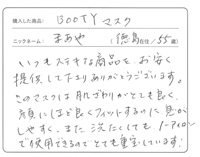 購入した商品： BOOTY マスク
ニックネーム： まあや （徳島在住／55歳）
いつもステキな商品を、お安く
提供して下さりありがとうございます。
このマスクは肌ざわりがとても良く、
顔にほど良くフィットするのに息が
しやすく、また洗たくしてもノーアイロン
で使用できるのでとても重宝しています!